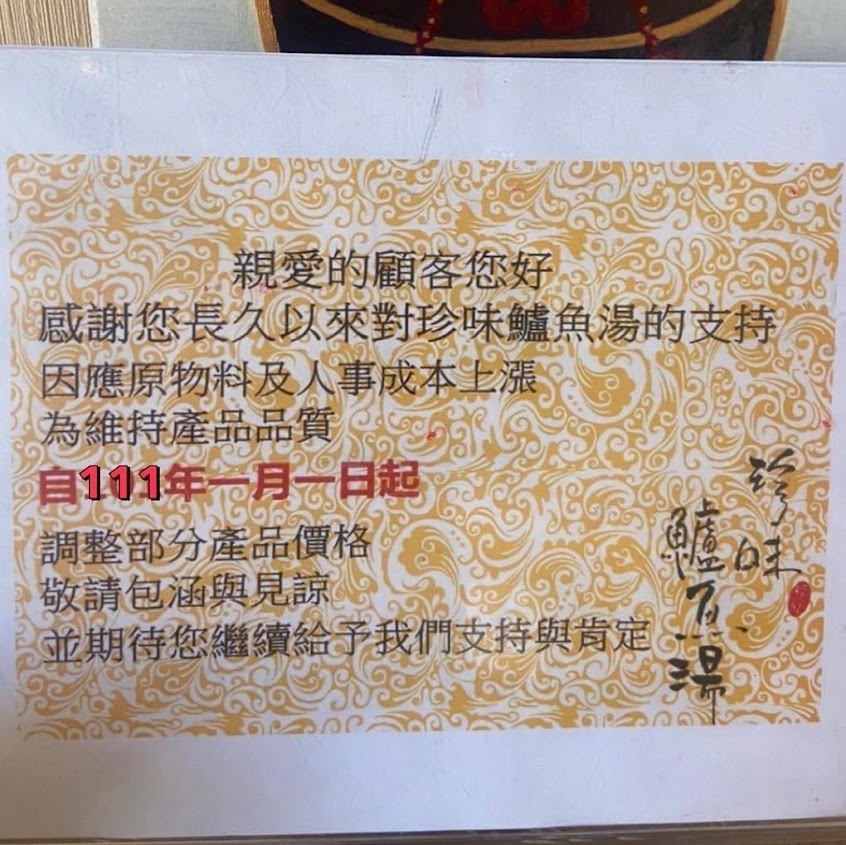 親愛的顧客您好
感謝您長久以來對珍味鱸魚湯的支持
因應原物料及人事成本上漲
為維持產品品質
自111年一月一日起
調整部分產品價格
敬請包涵與見諒
並期待您繼續給予我們支持與肯定
珍味
鱸魚湯